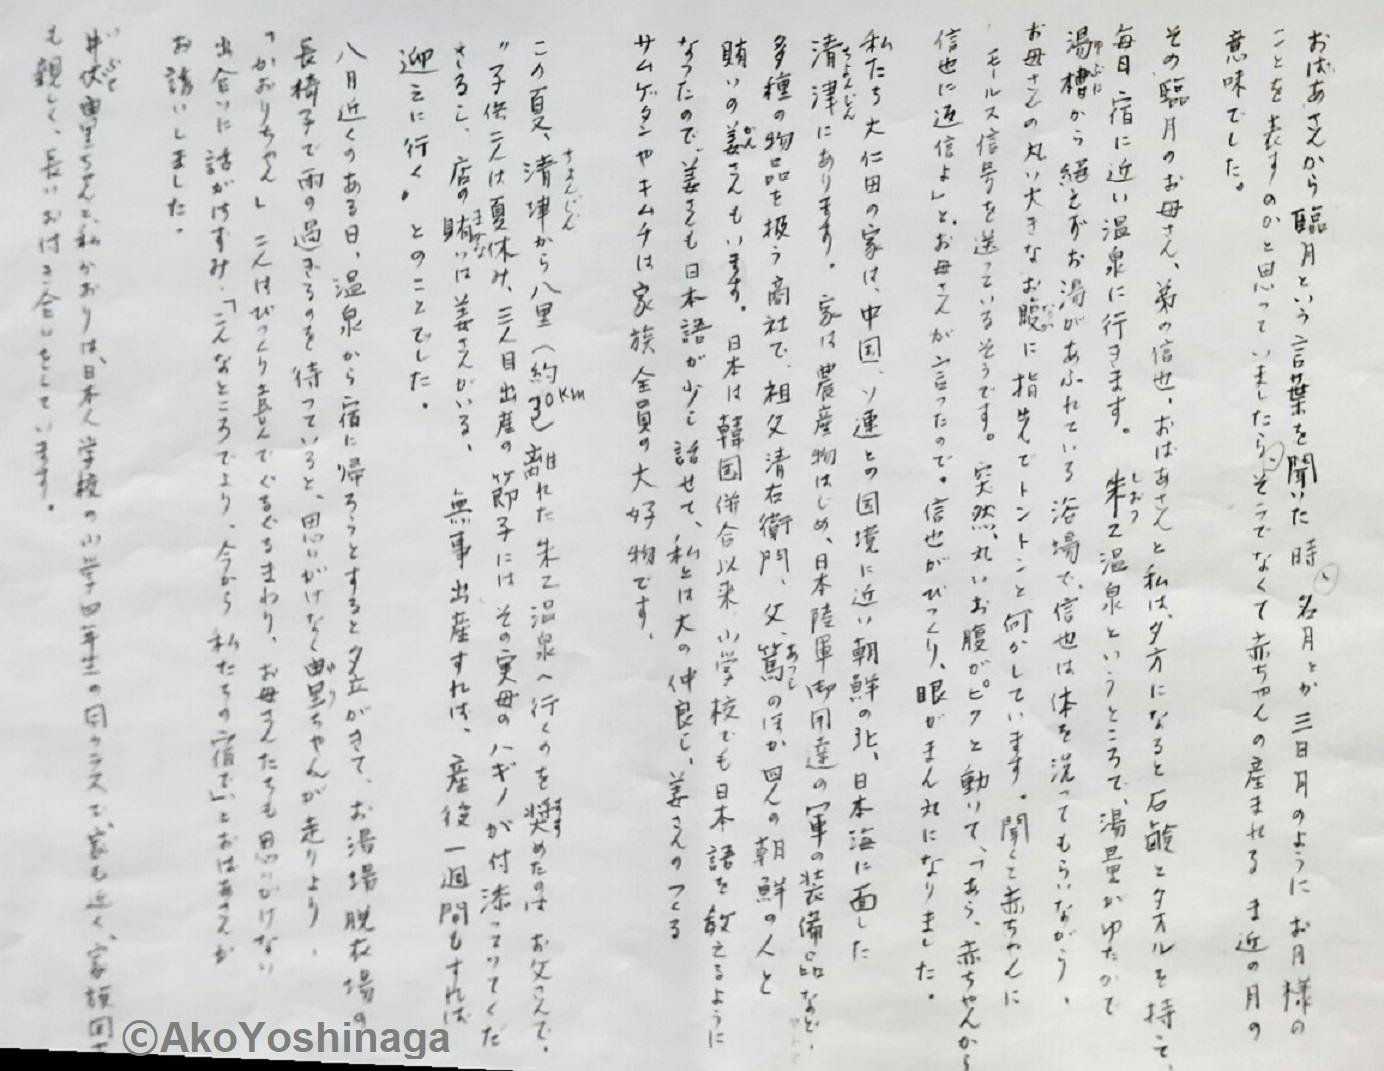 おばあさんから臨月という言葉を聞いた時、名月とか三日月のようにお月様の
ことを表すのかと思っていましたら、そうでなくて赤ちゃんの産まれるま近の月の
意味でした。
その臨月のお母さん、弟の信也、おばあさんと私は、夕方になると石鹸とタオルを持って、
毎日宿に近い温泉に行きます。朱乙温泉というところで、湯量がゆたかで
しおつ
湯槽から絶えずお湯があふれている浴場で、信也は体を洗ってもらいながら、
ゆぶね
お母さんの丸い大きなお腹に指先でトントンと何かしています。聞くと赤ちゃんに
モールス信号を送っているそうです。突然、丸いお腹がピクと動いて、「あら、赤ちゃんから
信也に返信よ」と、お母さんが言ったので。信也がびっくり、眼がまん丸になりました。
私たち大仁田の家は、中国、ソ連との国境に近い朝鮮の北、日本海に面した
清津にあります。家は農産物はじめ、日本陸軍御用達の軍の装備品など、
ちょんじん
多種の物品を扱う商社で、祖父清右衛門、父、篤のほか四人の朝鮮の人と
あつし
賄いの姜さんもいます。日本は韓国併合以来、小学校でも日本語を教えるように
かん
なったので、姜さんも日本語が少し話せて、私とは大の仲良し、姜さんのつくる
サムゲタンやキムチは家族全員の大好物です。
この夏、清津から八里(約30km)離れた朱乙温泉へ行くのを奨めたのはお父さんで、
ちょんじん
すす
〃子供二人は夏休み、三人目出産の節子にはその実母のハギノが付添ってくだ
さるし、店の賄いは姜さんがいる、無事出産すれば、産後一週間もすれば
まかな
迎えに行く〟とのことでした。
八月近くのある日、温泉から宿に帰ろうとすると夕立がきて、お湯場脱衣場の
長椅子で雨の過ぎるのを待っていると、思いがけなく由里ちゃんが走りより、
ゆり
「かおりちゃん」二人はびっくり喜んでぐるぐるまわり、お母さんたちも思いがけない
出合いに話がはずみ、「こんなところでより、今から私たちの宿で」とおばあさんが
お誘いしました。
井伏由里ちゃんと、私かおりは、日本人学校の小学四年生の同クラスで、家も近く、家族同士
いぶせ
も親しく、長いお付き合いをしています。
©AkoYoshinaga